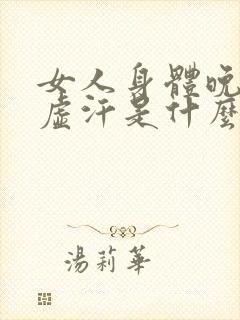 女人身體晚
虛汗是什麼
湯莉華